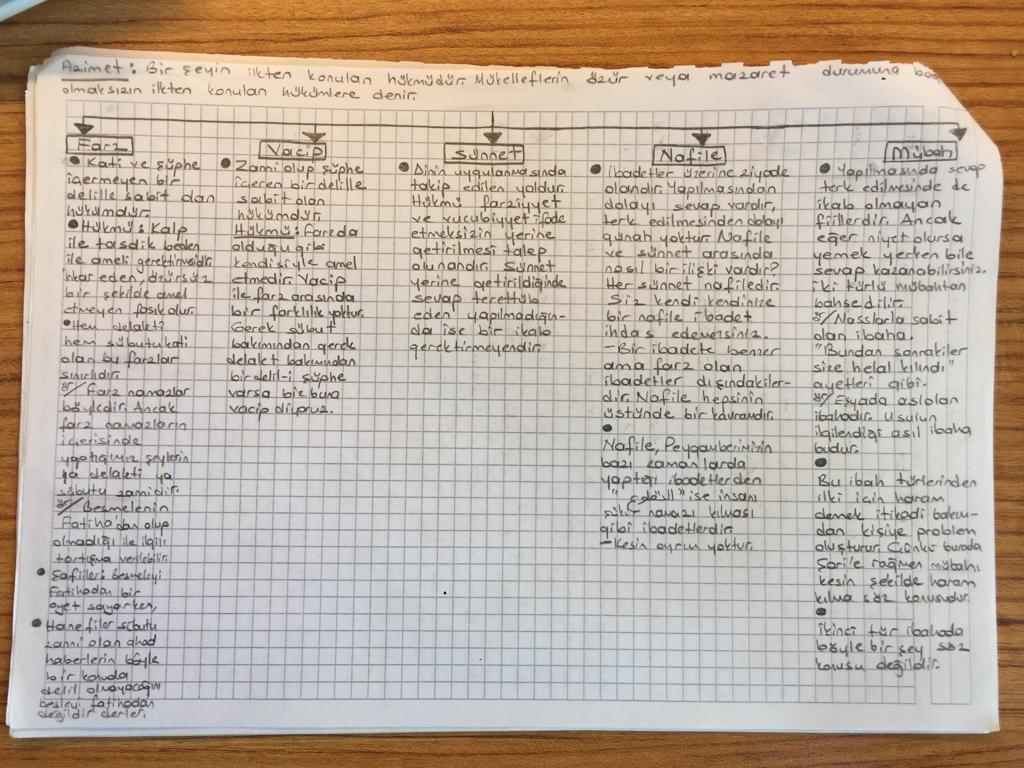 Azimet: Bir şeyin ilkten konulan hükmüdür. Mükelleflerin özür veya mazaret durumuna
olmaksızın ilkten konulan hükümlere denir.
Farz
• Kati ve şüphe
içermeyen bir
delille sabit olan
hükümdür.
• Hükmü: Kalp
ile tasdik beden
ile ameli gerektirmesidir.
inkar eden, özürsüz
bir şekilde amel
etmeyen fasık olur.
• Hem delaleti
hem sübutu kati
olan bu farzlar
sınırlıdır.
ör/ Farz namazlar
böyledir. Ancak
farz namazların
içerisinde
yaptığımız şeylerin
ya delaleti ya
sübutu zannidir.
ör/ Besmelenin
Fatiha'dan olup
olmadığı ile ilgili
tartışma verilebilir.
• Şafiiler: Besmeleyi
Fatihadan bir
ayet sayarken,
• Hanefiler sübutu
zanni olan ahad
haberlerin böyle
bir konuda
delil olmayacağın
besleyi fatihadan
değildir derler.
Vacip
• Zanni olup şüphe
içeren bir delille
sabit olan
hükümdür.
Hükmü: Farzda
olduğu gibi
kendisiyle amel
etmedir. Vacip
ile farz arasında
bir farklılık yoktur.
Gerek sübut
bakımından gerek
delalet bakımından
bir delil-i şüphe
varsa biz buna
vacip diyoruz.
Sünnet
• Dinin uygulanmasında
takip edilen yoldur.
Hükmü farziyyet
ve vucubiyyet ifade
etmeksizin yerine
getirilmesi talep
olunandır. Sünnet
yerine getirildiğinde
sevap terettüb
eden yapılmadığın-
da ise bir ikab
gerektirmeyendir.
Nafile
• ibadetler üzerine ziyade
olandır. Yapılmasından
dolayı sevap vardır,
terk edilmesinden dolayı
günah yoktur. Nafile
ve sünnet arasında
nasıl bir ilişki vardır?
Her sünnet nafiledir.
Siz kendi kendinize
bir nafile ibadet
ihdas edemezsiniz.
- Bir ibadete benzer
ama farz olan
ibadetler dışındakiler-
dir. Nafile hepsinin
üstünde bir kavramdır.
•
Nafile, Peygamberimizin
bazı zamanlarda
yaptığı ibadetlerden
ise insanı
şükür namazı kılması
gibi ibadetlerdir.
- Kesin ayrım yoktur.
Mübah
• Yapılmasında sevap
terk edilmesinde de
ikab olmayan
fiillerdir. Ancak
eğer niyet olursa
yemek yerken bile
sevap kazanabilirsiniz.
iki türlü mübahtan
bahsedilir.
ör/ Nasslarla sabit
olan ibaha.
"Bundan sonrakiler
size helal kılındı"
ayetleri gibi.
ör/ Eşyada aslolan
ibahadır. Usulün
ilgilendiği asıl ibaha
budur.
•
Bu ibah türlerinden
ilki için haram
demek itikadi bakım-
dan kişiye problem
oluşturur. Çünkü burada
Şarile rağmen mübahı
kesin şekilde haram
kılma söz konusudur.
•
ikinci tür ibahada
böyle bir şey söz
konusu değildir.